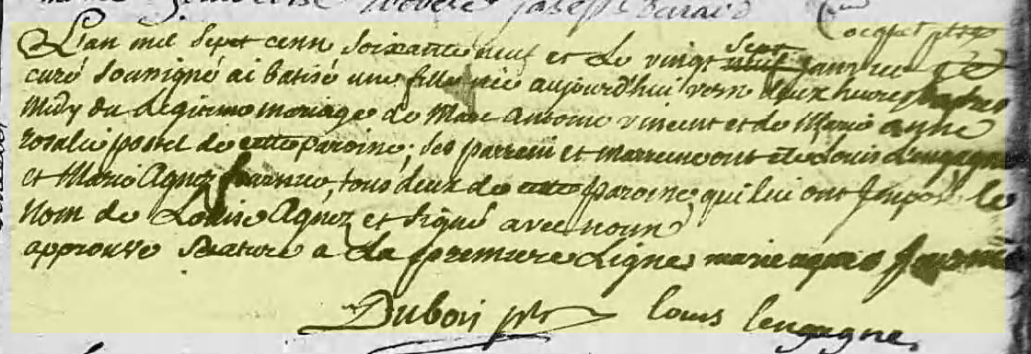 Joseph
L'an mil Sept cenn Soixante neuf et Le vingt Sept neuf janvier Je
curé Soussigné ai batisé une fille née aujourd'hui vern deux heures d'apres
Midy du Legitime mariage de Marc Antoine vincent et de Marie anne
rosalie postel de cette paroisse; Ses parrein et marreine ont été Louis Lengagne
et Marie Agnez fournié, tous deux de cette paroisse qui lui ont Imposé le
Nom de Louise Agnez et Signé avec noun
approuvé Rature a La premiere Ligne marie agnes fournié
Dubois ptr Louis lengagne